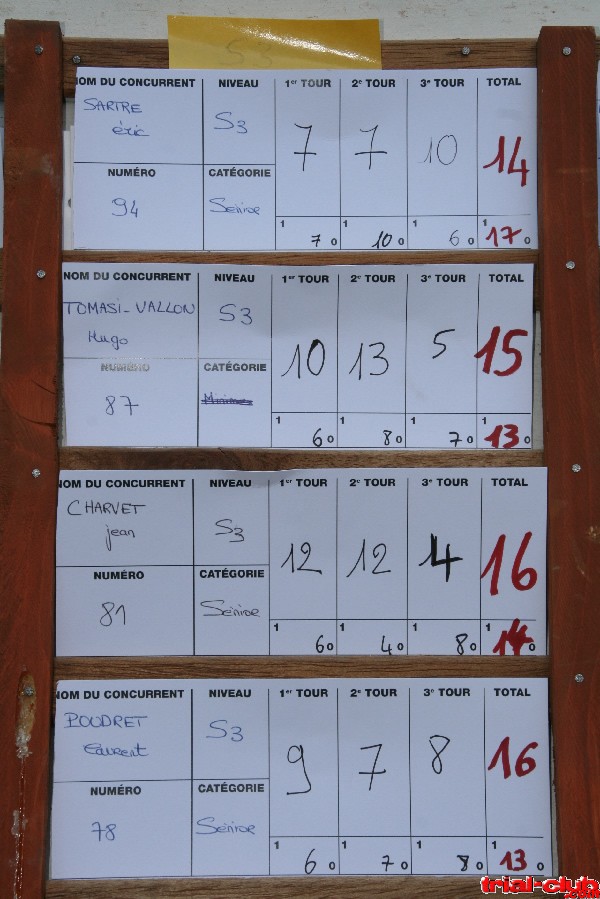 S3
NOM DU CONCURRENT NIVEAU 1er TOUR 2e TOUR 3e TOUR TOTAL
SARTRE S3 7 7 10 14
éric
NUMÉRO CATÉGORIE
94 Séniroe 1 7 0 1 10 0 1 6 0 1 17 0
NOM DU CONCURRENT NIVEAU 1er TOUR 2e TOUR 3e TOUR TOTAL
TOMASI-VALLON S3 10 13 5 15
Hugo
NUMÉRO CATÉGORIE
87 1 6 0 1 8 0 1 7 0 1 13 0
NOM DU CONCURRENT NIVEAU 1er TOUR 2e TOUR 3e TOUR TOTAL
CHARVET S3 12 12 4 16
jean
NUMÉRO CATÉGORIE
81 Séniroe 1 6 0 1 4 0 1 8 0 1 14 0
NOM DU CONCURRENT NIVEAU 1er TOUR 2e TOUR 3e TOUR TOTAL
POUDRET S3 9 7 8 16
Laurent
NUMÉRO CATÉGORIE
78 Séniroe 1 6 0 1 7 0 1 8 0 1 13 0
trial-club.com